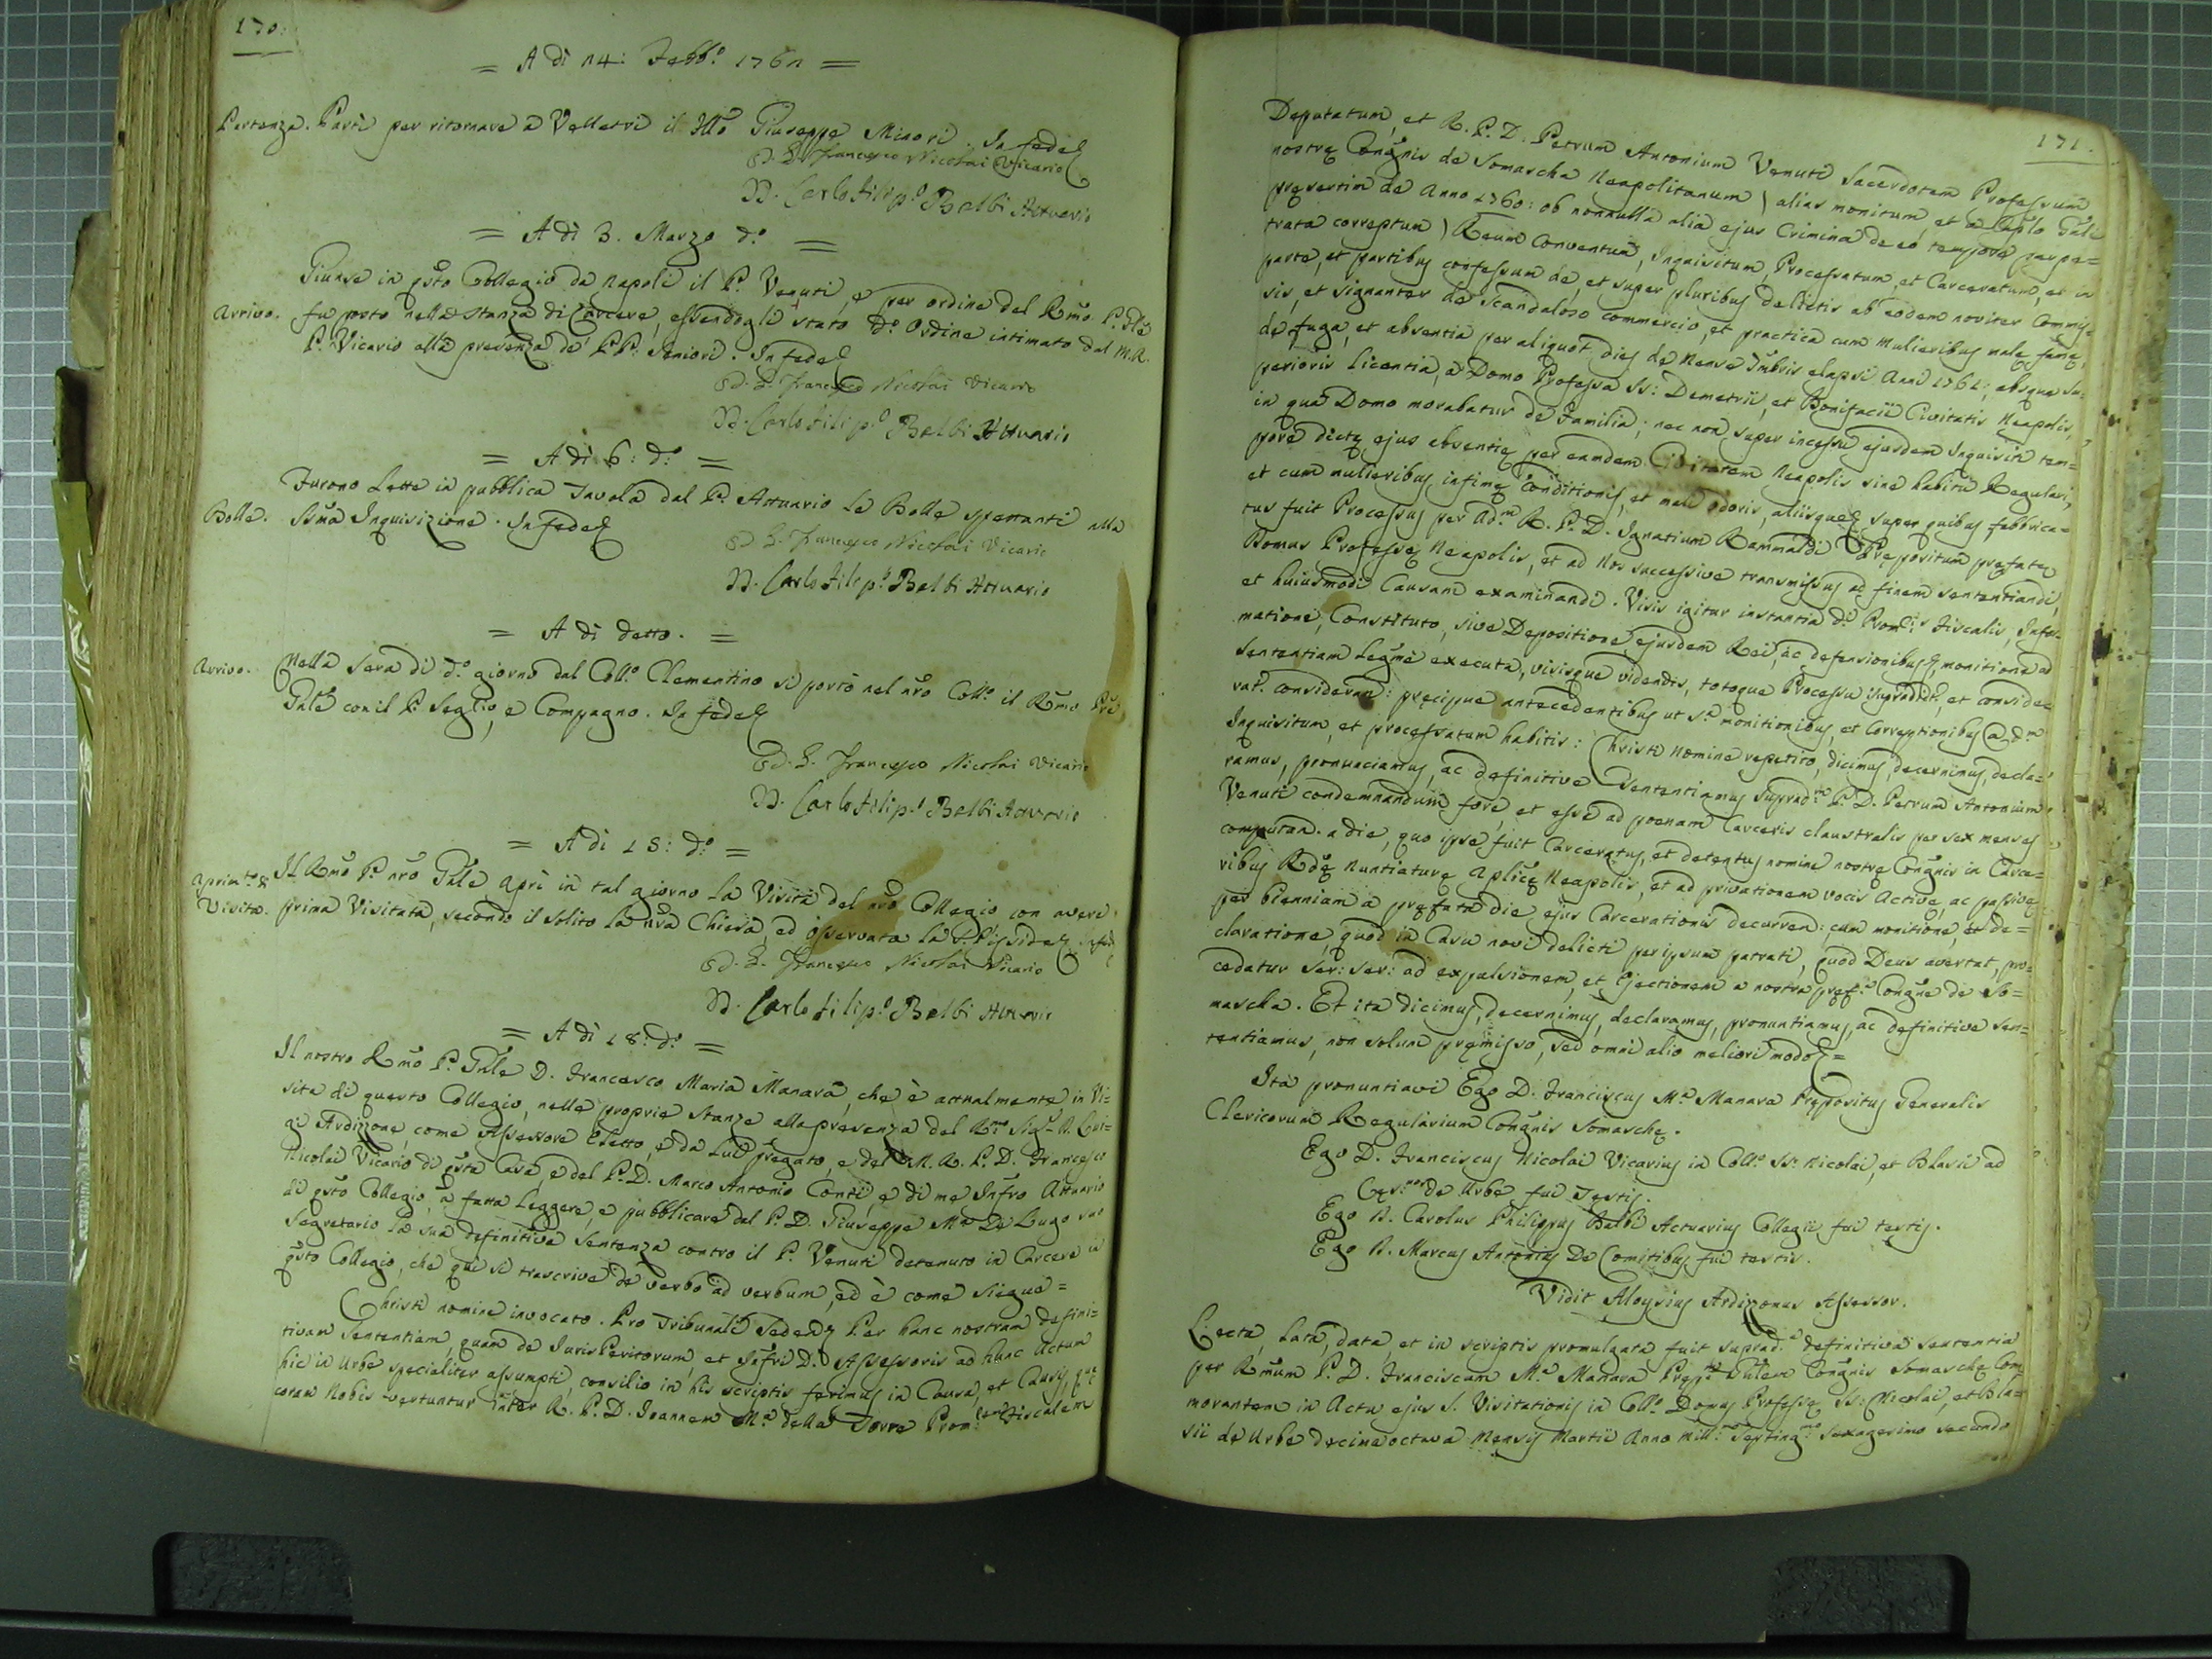 170.
= A dì 14: Febb.º 1761 =
Partenza. Partì per ritornare à Velletri il Illo Giuseppe Minori. In fede
D. Francesco Nicolai Vicario
D. Carlo Filip.º Balbi Attuario
= A dì 3. Marzo d.º =
Giunse in qsto Collegio da Napoli il P. Venuti, e per ordine del Rmo P. Gle
Arrivo. fu posto nella stanza di Carcere, essendogli stato d.º Ordine intimato dal M.R.
P. Vicario alla presenza de' PP. Seniori. In fede
D. Francesco Nicolai Vicario
D. Carlo Filip.º Balbi Attuario
= A dì 6: d.º =
Furono Lette in pubblica Tavola dal P. Attuario le Bolle spettanti alla
Bolle. Ssma Inquisizione. In fede
D. Francesco Nicolai Vicario
D. Carlo Filip.º Balbi Attuario
= A dì detto. =
Arrivo. Nella sera di d.º giorno dal Coll.º Clementino si portò nel nro Coll.º il Rmo Pre
Gnle con il P. Seg.rio, e Compagno. In fede
D. Francesco Nicolai Vicario
D. Carlo Filip.º Balbi Attuario
= A dì 18: d.º =
Aprim.to di Il Rmo P. nro Gnle aprì in tal giorno la Visita del nro Collegio, con avere
Visita. prima Visitata, secondo il solito la nra Chiesa, ed osservata la S. Pisside
D. Francesco Nicolai Vicario
D. Carlo Filip.º Balbi Attuario
= A dì 18: d.º =
Il nostro Rmo P. Gnle D. Francesco Maria Manara, che è attualmente in Vi=
sita di questo Collegio, nelle proprie stanze alla presenza del Rmo Sig.r D. Lui=
gi Ardizzone, come Assessore Eletto, e da Lui pregato, e del M. R. P. D. Francesco
Nicolai Vicario di qsta Casa, e del P. D. Marco Antonio Conti, e di me Infro Attuario
di qsto Collegio, à fatta leggere, e pubblicare dal P. D. Giuseppe Ma De Lugo suo
Segretario la sua definitiva Sentenza contro il P. Venuti detenuto in Carcere in
qsto Collegio, che qui si trascrive de verbo ad verbum, ed è come siegue =
Christi nomine invocato. Pro Tribunali Seden Per hanc nostram defini=
tivam Sententiam, quam de JurisPeritorum, et Infri D. Assessoris ad hunc Actum
hic in Urbe specialiter assumpti, consilio in his scriptis ferimus in Causa, et Causis, que
coram Nobis vertuntur inter R. P. D. Joannem Ma della Torre Prom. Fiscalem
171.
Deputatum, et R. P. D. Petrum Antonium Venuti Sacerdotem Professum
nostrę Congnis de Somascha Neapolitanum (alias monitum, et à Caplo Gnli
pręsertim de Anno 1760: ob nonnulla alia ejus Crimina de eo tempore perpe=
trata correptum) Reum Conventum, Inquisitum, Processatum, et Carceratum, et in
parte, et partibus confessum de, et super pluribus delictis ab eodem noviter commis=
sis, et signanter de Scandaloso commercio, et practica cum Mulieribus malę famę,
de fuga, et absentia per aliquot dies de Mense Xmbris elapsi Anni 1761; absque Su=
perioris licentia, à Domo Professa SS: Demetrii, et Bonifacii Civitatis Neapolis,
in qua Domo morabatur de Familia; nec non super incessu ejusdem Inquisiti tem=
pore dictę ejus absentię per eamdem Civitatem Neapolis sine habitu Regulari,
et cum mulieribus infimę conditionis, et mali odoris, aliisque super quibus fabbrica=
tus fuit Processus per Ad.m R. P. D. Ignatium Rammaldi Prępositum pręfatę
Domus Professę Neapolis, et ad Nos successive transmissus ad finem sententiandi,
et huiusmodi Causam examinandi. Visis igitur instantia d.i Prom.is Fiscalis, Infor=
matione, Constituto, sive Depositione ejusdem Rei, ac defensionibus, monitione ad
Sententiam legme executa, visisque videndis, totoque Processu supradicto, et conside=
rat. consideran: pręcipue antecedentibus ut s.a monitionibus, et Correptionibus
Inquisitum, et processatum habitis: Christi Nomine repetito, dicimus, decernimus, decla=
ramus, pronunciamus, ac definitive Sententiamus suprad.m P. D. Petrum Antonium
Venuti condemnandum fore, et esse ad poenam Carceris claustralis per sex menses
computan. a die, quo ipse fuit Carceratus, et detentus nomine nostrę Congnis in Carce=
ribus Rdę Nuntiaturę Aplicę Neapolis, et ad privationem vocis Activę, ac passivę
per biennium a pręfata die ejus Carcerationis decurren: cum monitione, et de=
claratione, quod in Casu novi delicti per ipsum patrati, quod Deus avertat, pro=
cedatur Ser: Ser: ad expulsionem, et Ejectionem a nostra pręf.a Congne de So=
mascha. Et ita dicimus, decernimus, declaramus, pronuntiamus, ac definitive Sen=
tentiamus, non solum pręmisso, sed omni alio meliori modo =
Ita pronuntiavi Ego D. Franciscus Ma Manara Prępositus Generalis
Clericorum Regularium Congnis Somaschę.
Ego D. Franciscus Nicolai Vicarius in Coll.º SS. Nicolai, et Blasii ad
de Urbe fui Testis.
Ego D. Carolus Philippus Balbi Actuarius Collegii fui testis.
Ego D. Marcus Antonius De Comitibus fui testis.
Vidit Aloysius Ardizzonus Assessor.
Lecta, lata, data, et in scriptis promulgata fuit suprad.a definitiva sententia
per Rmum P. D. Franciscum Ma Manara Prep.m Gnlem Congnis Somaschę Com
morantem in Actu ejus S. Visitationis in Coll.º Domus Professę SS: Nicolai, et Bla=
sii de Urbe decima octava Mensis Martii Anno Mill.mo Septing.mo Sexagesimo secundo